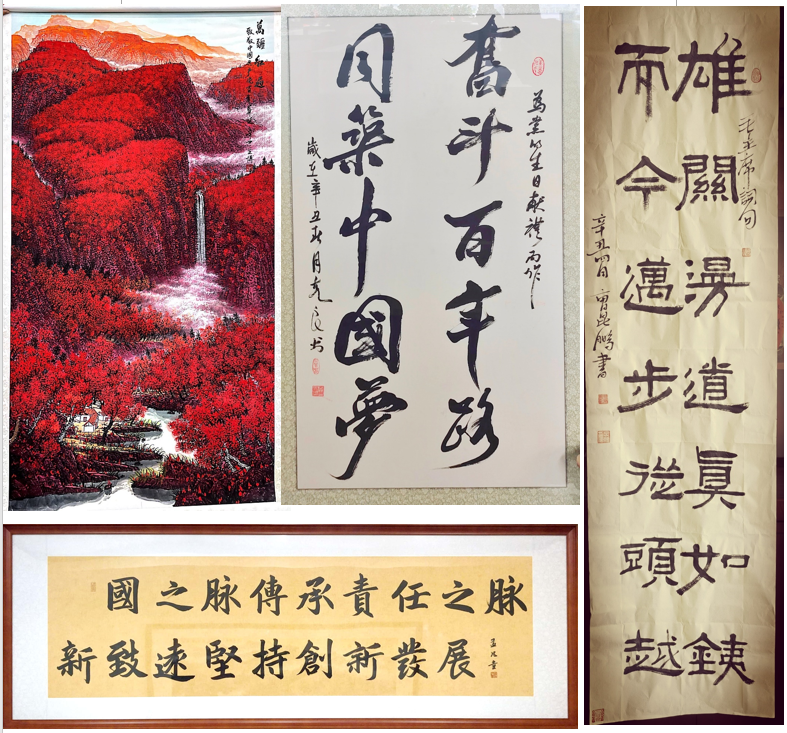 奮斗百年路
為黨的生日献禮而作
同築中國夢
歲在辛丑春月克良书
雄關漫道眞如銕
毛主席詞句
而今邁步從頭越
辛丑四月曾昆鵬書
國之脉傳承責任之脉
新致遠堅持創新發展